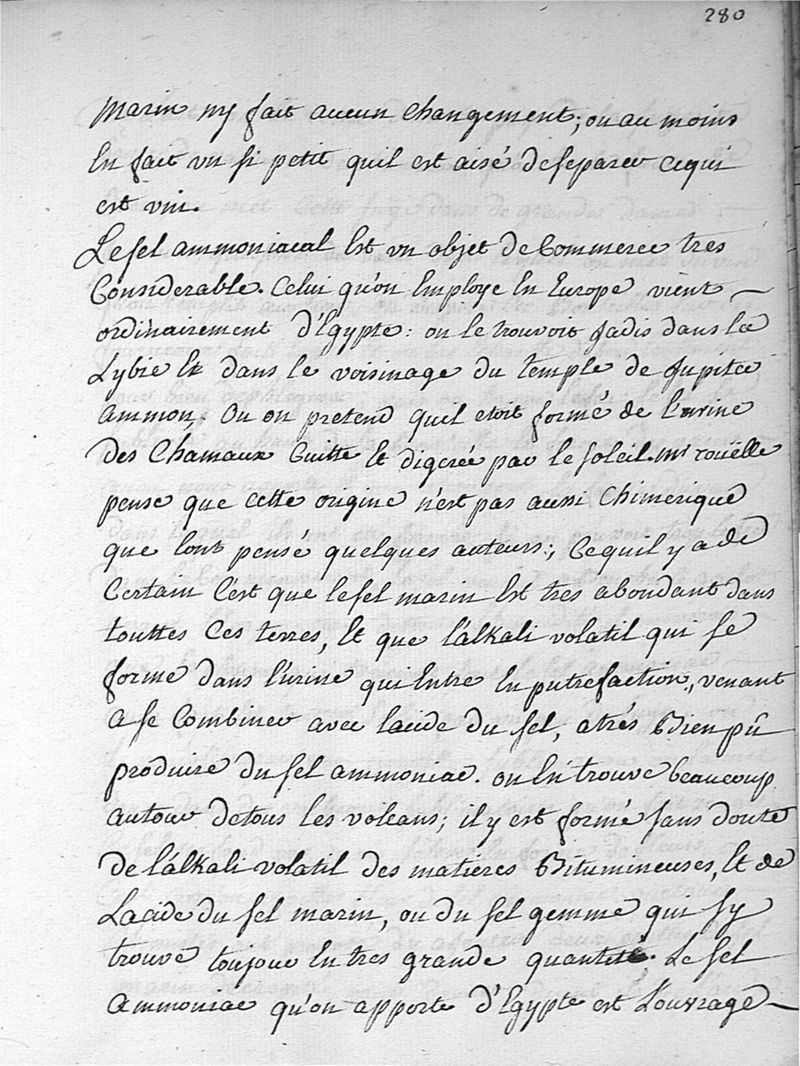 280
marin ny fait aucun changement; ou au moins
En fait un si petit quil est aisé de separer ce qui
est vin.
Le sel ammoniacal Est un objet de Commerce tres
Considerable. Celui qu'on Employe En Europe vient
ordinairement d'Egypte: on le trouvoit jadis dans la
Lybie Et dans le voisinage du temple de Jupiter
ammon, Ou on pretend quel etoit formé de l'urine
des Chamaux Cuitte Et digerée par le soleil. mr rouëlle
pense que cette origine n'est pas aussi Chimerique
que lont pensé quelques auteurs; Ce quil y a de
Certain C'est que le sel marin Est tres abondant dans
touttes Ces terres, Et que l'alkali volatil qui se
forme dans l'urine qui Entre En putrefaction, venant
a se Combiner avec lacide du sel, a trés Bien pû
produire du sel ammoniac. on En trouve beaucoup
autour de tous les volcans; il y est formé sans doute
de l'alkali volatil des matieres Bitumineuses, Et de
Lacide du sel marin, ou du sel gemme qui s'y
trouve toujour En tres grande quantité. Le sel
Ammoniac qu'on apporte d'Egypte est L'ouvrage